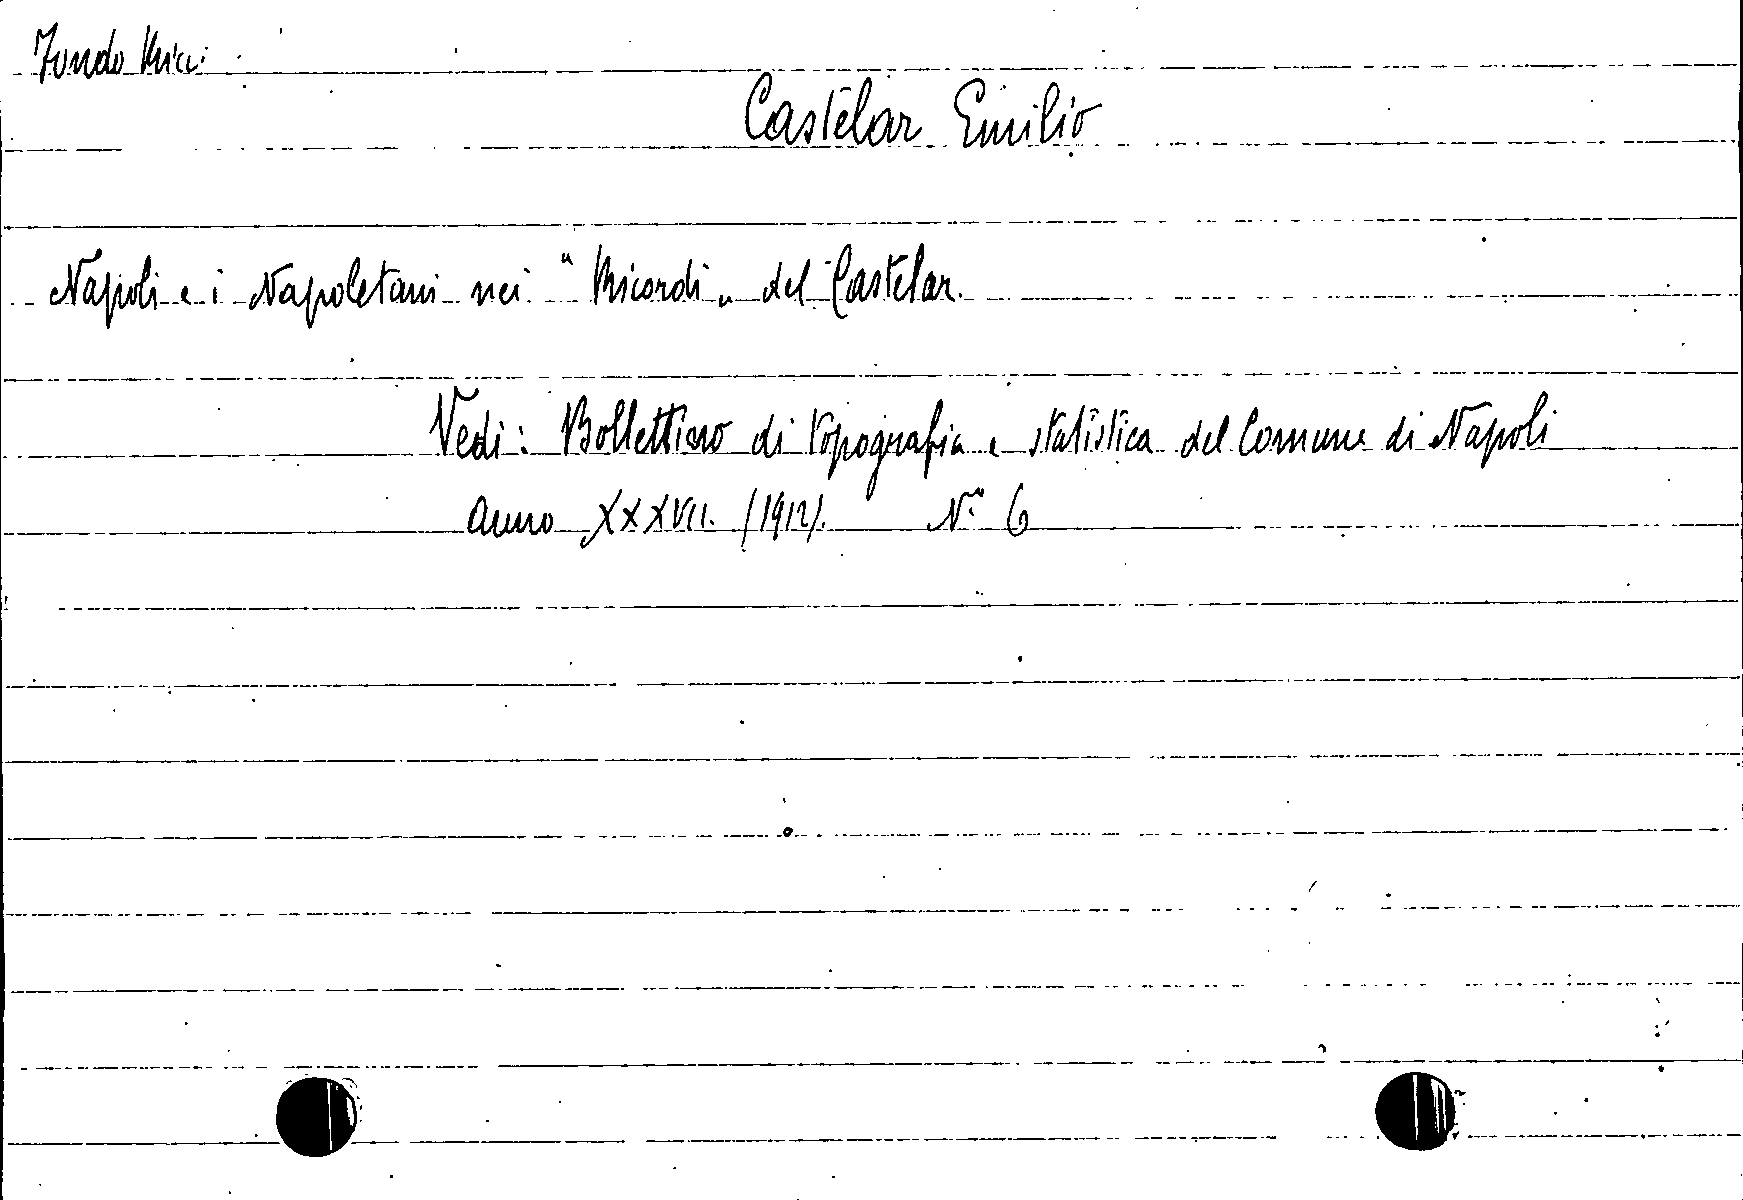 Fondo Ricci
Castelar Emilio
Napoli e i Napoletani nei "Ricordi„ del Castelar.
Vedi: Bollettino di topografia e statistica del Comune di Napoli
Anno XXXVII. (1912). N.° 6